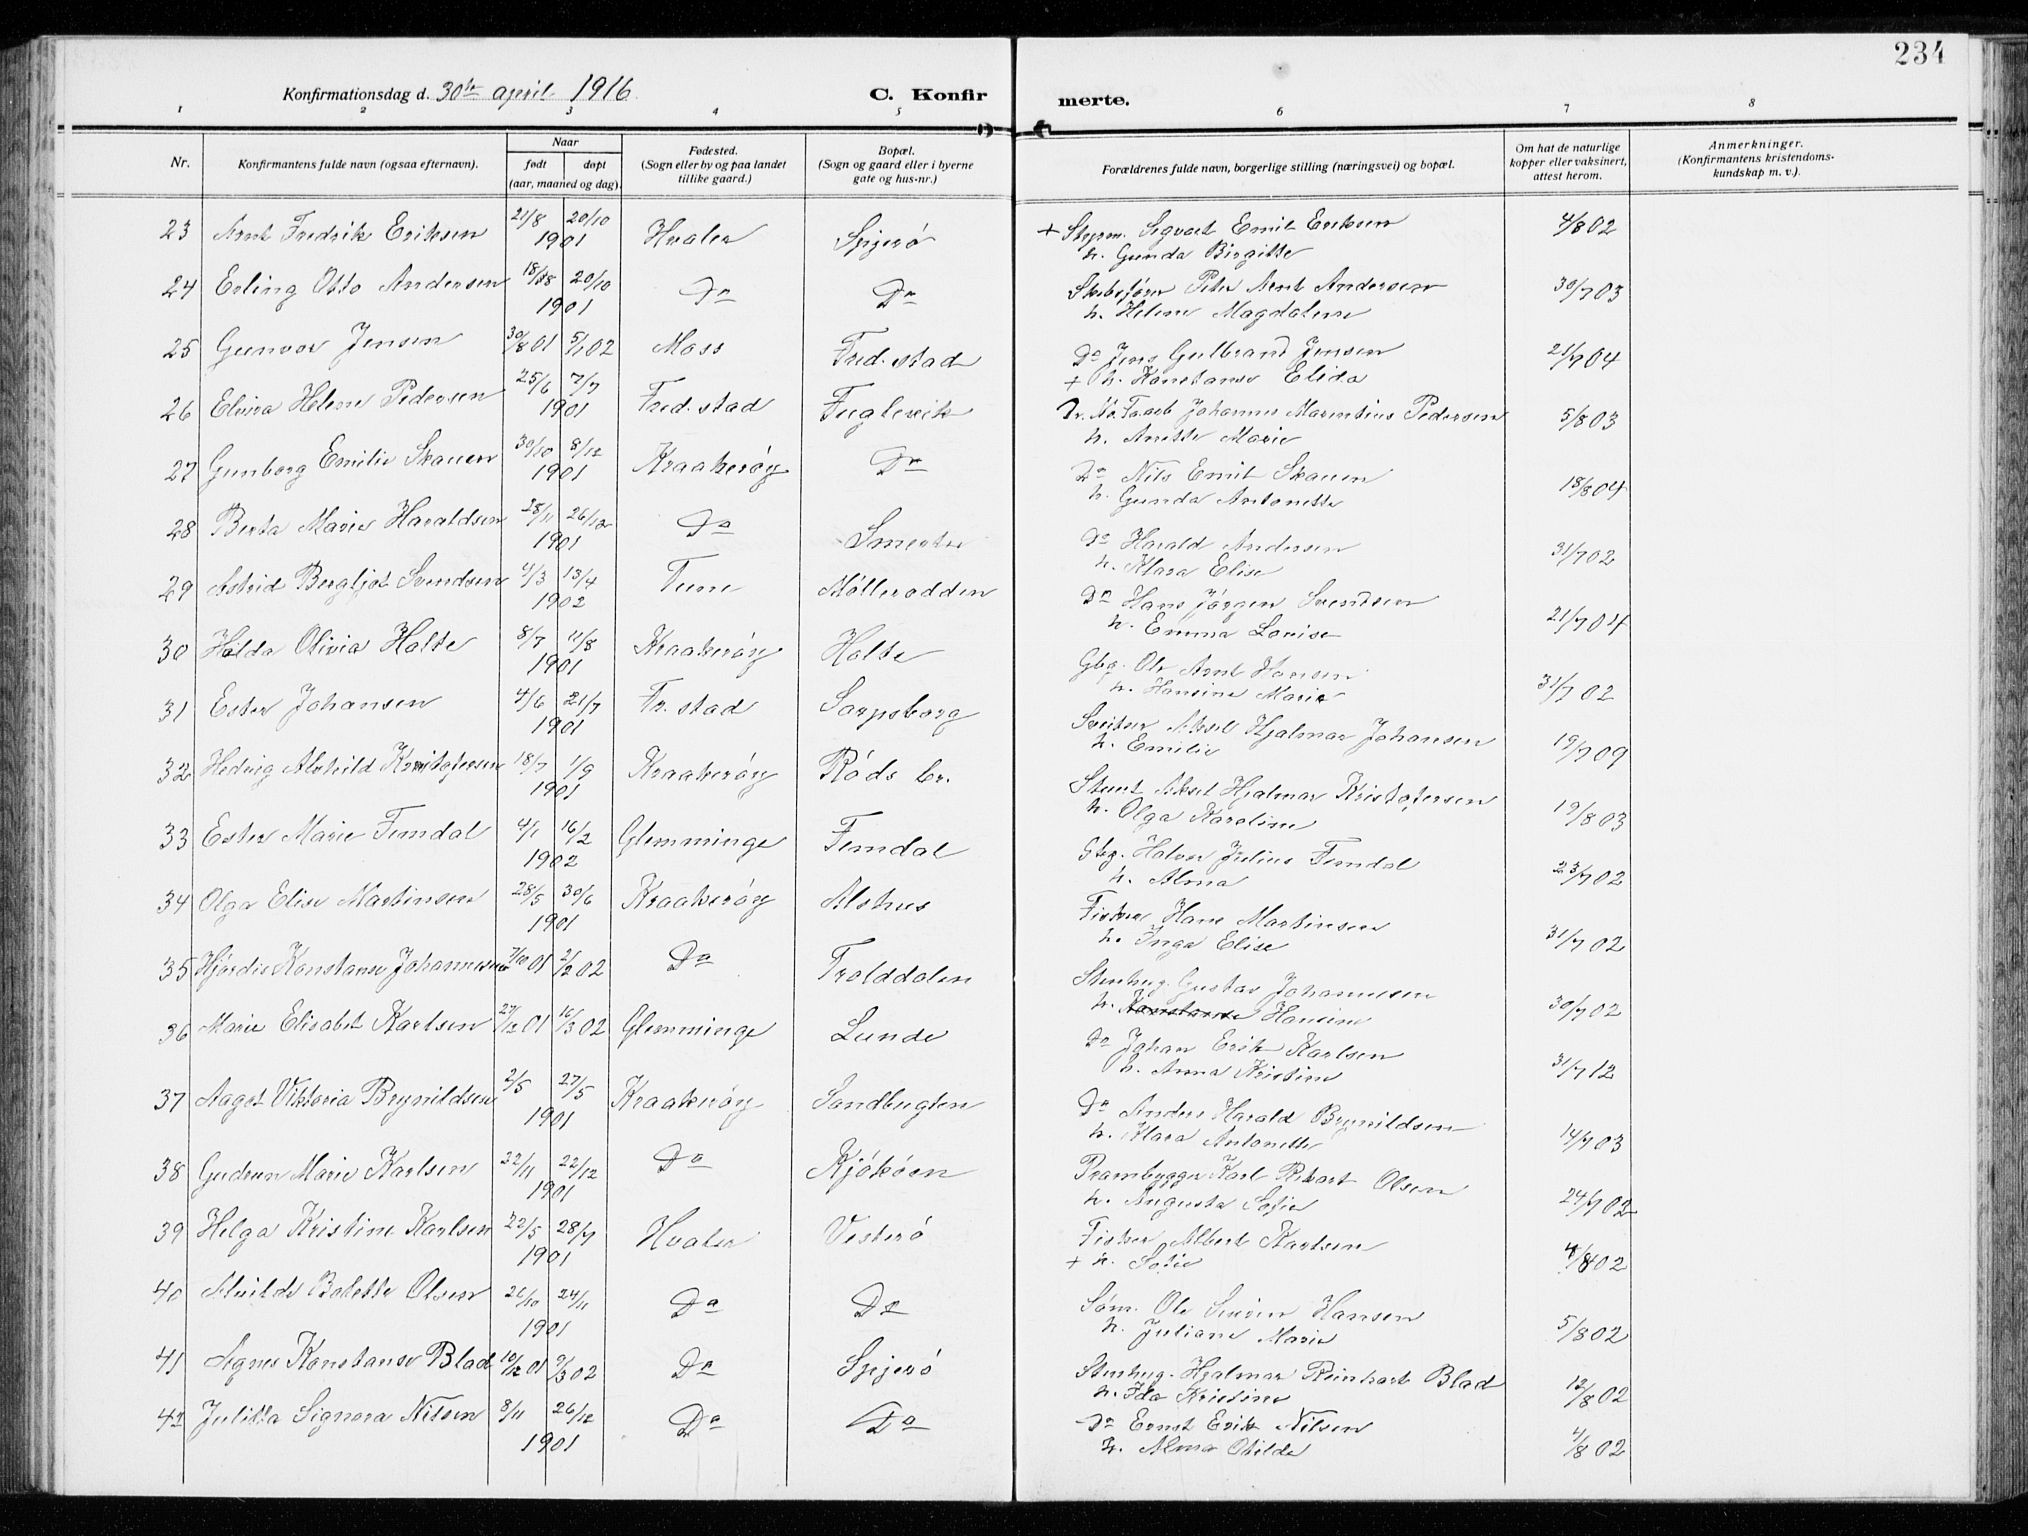 234
Konfirmationsdag d. 30te april 1916. C. Konfir merte.
1 2 3 4 5 6 7 8
Nr. Konfirmantens fulde navn (ogsaa efternavn). Naar født døpt (aar, maaned og dag) Fødested. (Sogn eller by og paa landet tillike gaard.) Bopæl. (Sogn og gaard eller i byerne gate og hus-nr.) Forældrenes fulde navn, borgerlige stilling (næringsvei) og bopæl. Om hat de naturlige kopper eller vaksinert, attest herom. Anmerkninger. (Konfirmantens kristendoms-kundskap m. v.).
23 Arnt Fredrik Eriksen 21/8 20/10 1901 Hvaler Spjerø + Styrm. Sigvart Emil Eriksen 4/8 02
h. Gunda Birgitte
24 Erling Otto Andersen 18/8 20/10 1901 Do Do Skibsfører Peter Arnt Andersen 30/7 03
h. Helene Magdalene
25 Gunvor Jensen 30/8 01 5/1 02 Moss Fred.stad Do Jens Gulbrand Jensen 21/7 04
+ h. Konstanse Elida
26 Elvira Helene Pedersen 25/6 7/7 1901 Fred.stad Fuglevik Johannes Marentius Pedersen 5/8 03
h. Anette Marie
27 Gunborg Emilie Skauen 30/10 8/12 1901 Kraakerøy Do Do Nils Emil Skauen 18/8 04
h. Gunda Antonette
28 Berta Marie Haraldsen 28/11 26/12 1901 Do Smerta Do Harald Andersen 31/7 02
h. Klara Elise
29 Astrid Bergljot Svendsen 4/3 13/4 1902 Tune Mølleradden Do Hans Jørgen Svendsen 21/7 04
h. Emma Lovise
30 Hilda Olivia Holte 8/7 11/8 1901 Kraakerøy Holte Gbg. Ole Arnt Hansen 31/7 02
h. Hansine Marie
31 Ester Johansen 4/6 21/7 1901 Fr.stad Sarpsborg Sveitser Aksel Hjalmar Johansen 19/7 09
h. Emilie
32 Hedvig Alvhild Kristofersen 18/7 1/9 1901 Kraakerøy Røds br. Stent Aksel Hjalmar Kristofersen 19/8 03
h. Olga Karoline
33 Ester Marie Femdal 4/1 16/2 1902 Glemminge Femdal Gbg. Halvor Julius Femdal 23/7 02
h. Alma
34 Olga Elise Martinsen 28/5 30/6 1901 Kraakerøy Alshus Fisker Hans Martinsen 31/7 02
h. Inga Elise
35 Hjørdis Konstanse Johannesen 7/10 01 2/2 02 Do Trolddalen Stenhug. Gustav Johannesen 30/7 02
h. Konstanse Hansine
36 Marie Elisabet Karlsen 27/12 01 16/3 02 Glemminge Lunde Do Johan Erik Karlsen 31/7 12
h. Anna Kristine
37 Aagot Viktoria Brynildsen 2/5 27/5 1901 Kraakerøy Sandbugten Do Anders Harald Brynildsen 14/7 03
h. Klara Antonette
38 Gudrun Marie Karlsen 22/11 22/12 1901 Do Kjøkøen Prambygger Karl Rikart Olsen 24/7 02
h. Augusta Sofie
39 Helga Kristine Karlsen 22/5 28/7 1901 Hvaler Vesterø Fisker Albert Karlsen 4/8 02
+ h. Sofie
40 Alvilde Bolette Olsen 26/10 24/11 1901 Do Do Søm. Ole Hansen 5/8 02
h. Juliane Marie
41 Agnes Konstanse Blad 10/12 01 9/3 02 Do Spjerø Stenhug. Hjalmar Reinhart Blad 12/8 02
h. Ida Kristine
42 Julitta Signora Nilsen 8/11 26/12 1901 Do Do Do Ernst Erik Nilsen 4/8 02
h. Alma Otilde